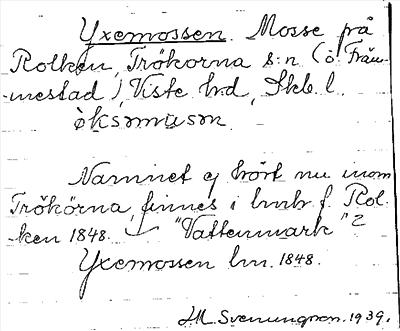 Yxemossen. Mosse på
Rolken, Trökörna s:n (o. Främ-
mestad), Viste hd, Skb. l.
øksəmusən
Namnet ej hört nu inom
Trökörna, finnes i hmb f. Rol-
ken 1848. — "Vattenmark"?
Yxemossen lm. 1848.
H. Svenungson. 1939.